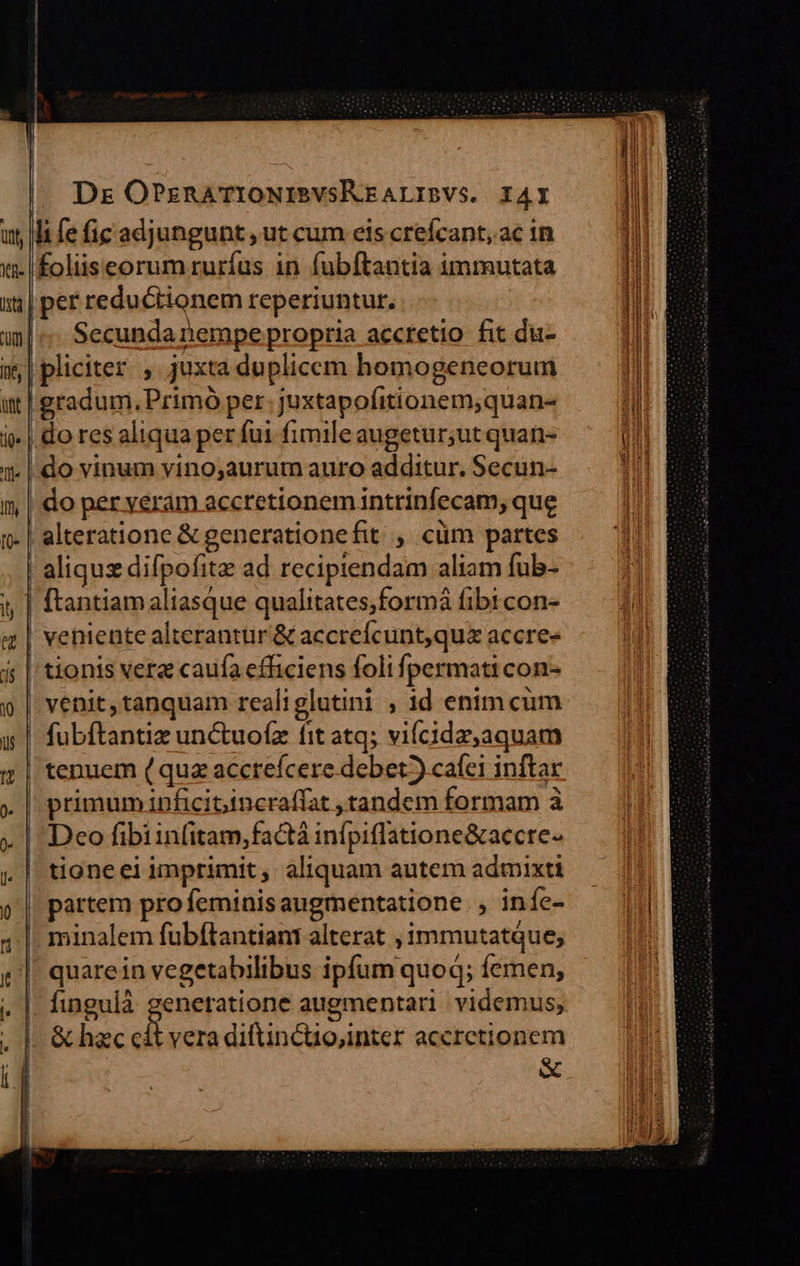 De OPERATIONIBVS REALIBVS. 141
li ſe ſic adjungunt, ut cum eis creſcant, ac in
foliis eorum rurſus in ſubſtantia immutata
per reductionem reperiuntur.
Secunda nempe propria accretio fit du-
pliciter , juxta duplicem homogeneorum
gradum. Primò per juxtapoſitionem, quan-
do res aliqua per ſui ſimile augetur, ut quan-
do vinum vino, aurum auro additur. Secun-
do per veram accretionem intrinſecam, que
alteratione & generatione fit , cùm partes
aliquæ diſpoſitæ ad recipiendam aliam ſub-
ſtantiam aliasq́ue qualitates, formâ ſibi con-
veniente alterantur & accreſcunt, quæ accre-
tionis veræ cauſa efficiens ſoli ſpermati con-
venit, tanquam reali glutini , id enim cùm
ſubſtantiæ unctuoſæ ſit atq; viſcidæ, aquam
tenuem ( quæ accreſcere debet) caſei inſtar
primum inficit, incraſſat, tandem formam à
Deo ſibi inſitam, factâ inſpiſſatione & accre-
tione ei imprimit, aliquam autem admixti
partem pro ſeminis augmentatione , in ſe-
minalem ſubſtantiam alterat , immutatq́ue,
quare in vegetabilibus ipſum quoq́; ſemen,
ſingulâ generatione augmentari videmus,
& hæc eſt vera diſtinctio, inter accretionem
&